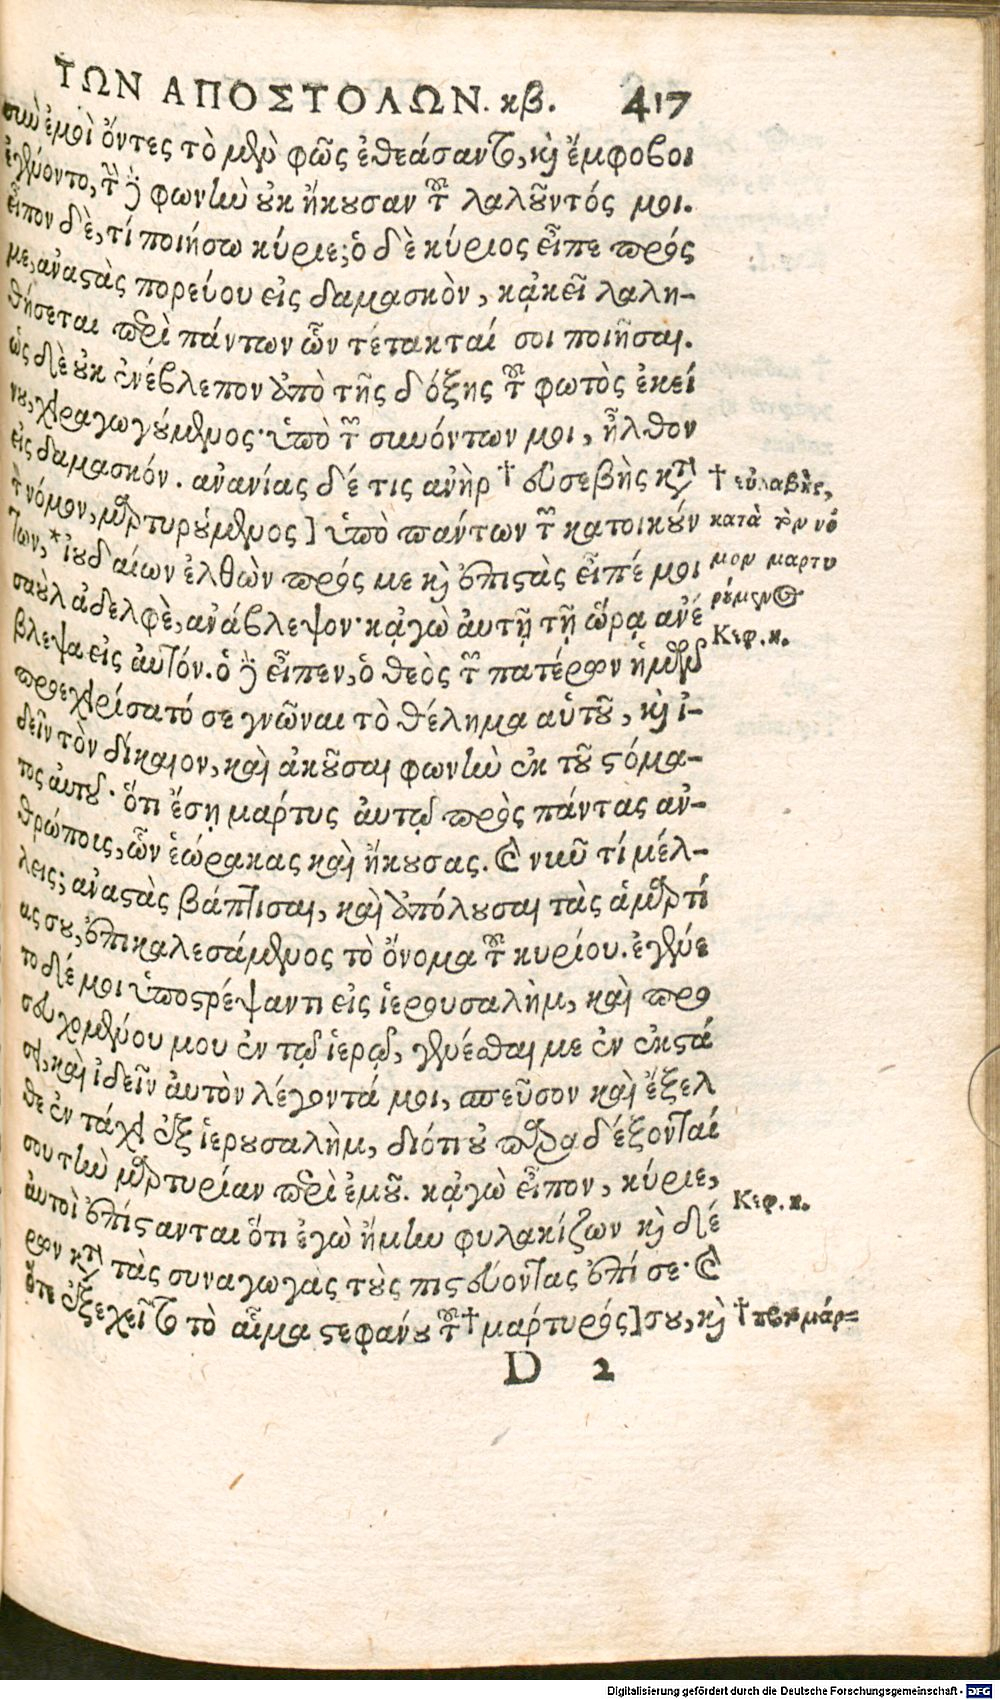 ΤΩΝ ΑΠΟΣΤΟΛΩΝ. κβ. 417
σὺν ἐμοὶ ὄντες τὸ μὲν φῶς ἐθεάσαντο, καὶ ἔμφοβοι
ἐγένοντο, τὴν δὲ φωνὴν οὐκ ἤκουσαν τοῦ λαλοῦντός μοι.
εἶπον δὲ, τί ποιήσω κύριε; ὁ δὲ κύριος εἶπε πρός
με, ἀναστὰς πορεύου εἰς δαμασκὸν, κᾀκεῖ λαλη-
θήσεται περὶ πάντων ὧν τέτακταί σοι ποιῆσαι.
ὡς δὲ οὐκ ἐνέβλεπον ἀπὸ τῆς δόξης τοῦ φωτὸς ἐκεί
νου, χειραγωγούμενος ὑπὸ τῶν συνόντων μοι, ἦλθον
εἰς δαμασκόν. ἀνανίας δέ τις ἀνὴρ † εὐσεβὴς κατὰ
τὸν νόμον, μαρτυρούμενος] ὑπὸ πάντων τῶν κατοικούν
των, * ἰουδαίων ἐλθὼν πρός με καὶ ἐπιστὰς εἶπέ μοι
σαοὺλ ἀδελφὲ, ἀνάβλεψον· κᾀγὼ αὐτῇ τῇ ὥρᾳ ἀνέ
βλεψα εἰς αὐτόν. ὁ δὲ εἶπεν, ὁ θεὸς τῶν πατέρων ἡμῶν
προεχειρίσατό σε γνῶναι τὸ θέλημα αὑτοῦ, καὶ ἰ-
δεῖν τὸν δίκαιον, καὶ ἀκοῦσαι φωνὴν ἐκ τοῦ στόμα-
τος αὐτοῦ. ὅτι ἔσῃ μάρτυς αὐτῷ πρὸς πάντας ἀν-
θρώποις, ὧν ἑώρακας καὶ ἤκουσας. καὶ νῦν τί μέλ-
λεις; ἀναστὰς βάπτισαι, καὶ ἀπόλουσαι τὰς ἁμαρτί
ας σου, ἐπικαλεσάμενος τὸ ὄνομα τοῦ κυρίου. ἐγένε
το δέ μοι ὑποστρέψαντι εἰς ἱερουσαλὴμ, καὶ προ
σευχομένου μου ἐν τῷ ἱερῷ, γενέσθαι με ἐν ἐκστά
σει, καὶ ἰδεῖν αὐτὸν λέγοντά μοι, σπεῦσον καὶ ἔξελ
θε ἐν τάχει ἐξ ἱερουσαλὴμ, διότι οὐ παραδέξονταί
σου τὴν μαρτυρίαν περὶ ἐμοῦ. κᾀγὼ εἶπον, κύριε,
αὐτοὶ ἐπίστανται ὅτι ἐγὼ ἤμην φυλακίζων καὶ δέ
ρων κατὰ τὰς συναγωγὰς τοὺς πιστεύοντας ἐπί σε· καὶ
ὅτε ἐξεχεῖτο τὸ αἷμα στεφάνου τοῦ † μάρτυρός] σου, καὶ
D 2
† εὐλαβὴς,
κατὰ τὸν νό
μον μαρτυ
ρούμενος
Κεφ. κ.
Κεφ. κ.
† πρωμάρ=
Digitalisierung gefördert durch die Deutsche Forschungsgemeinschaft - DFG